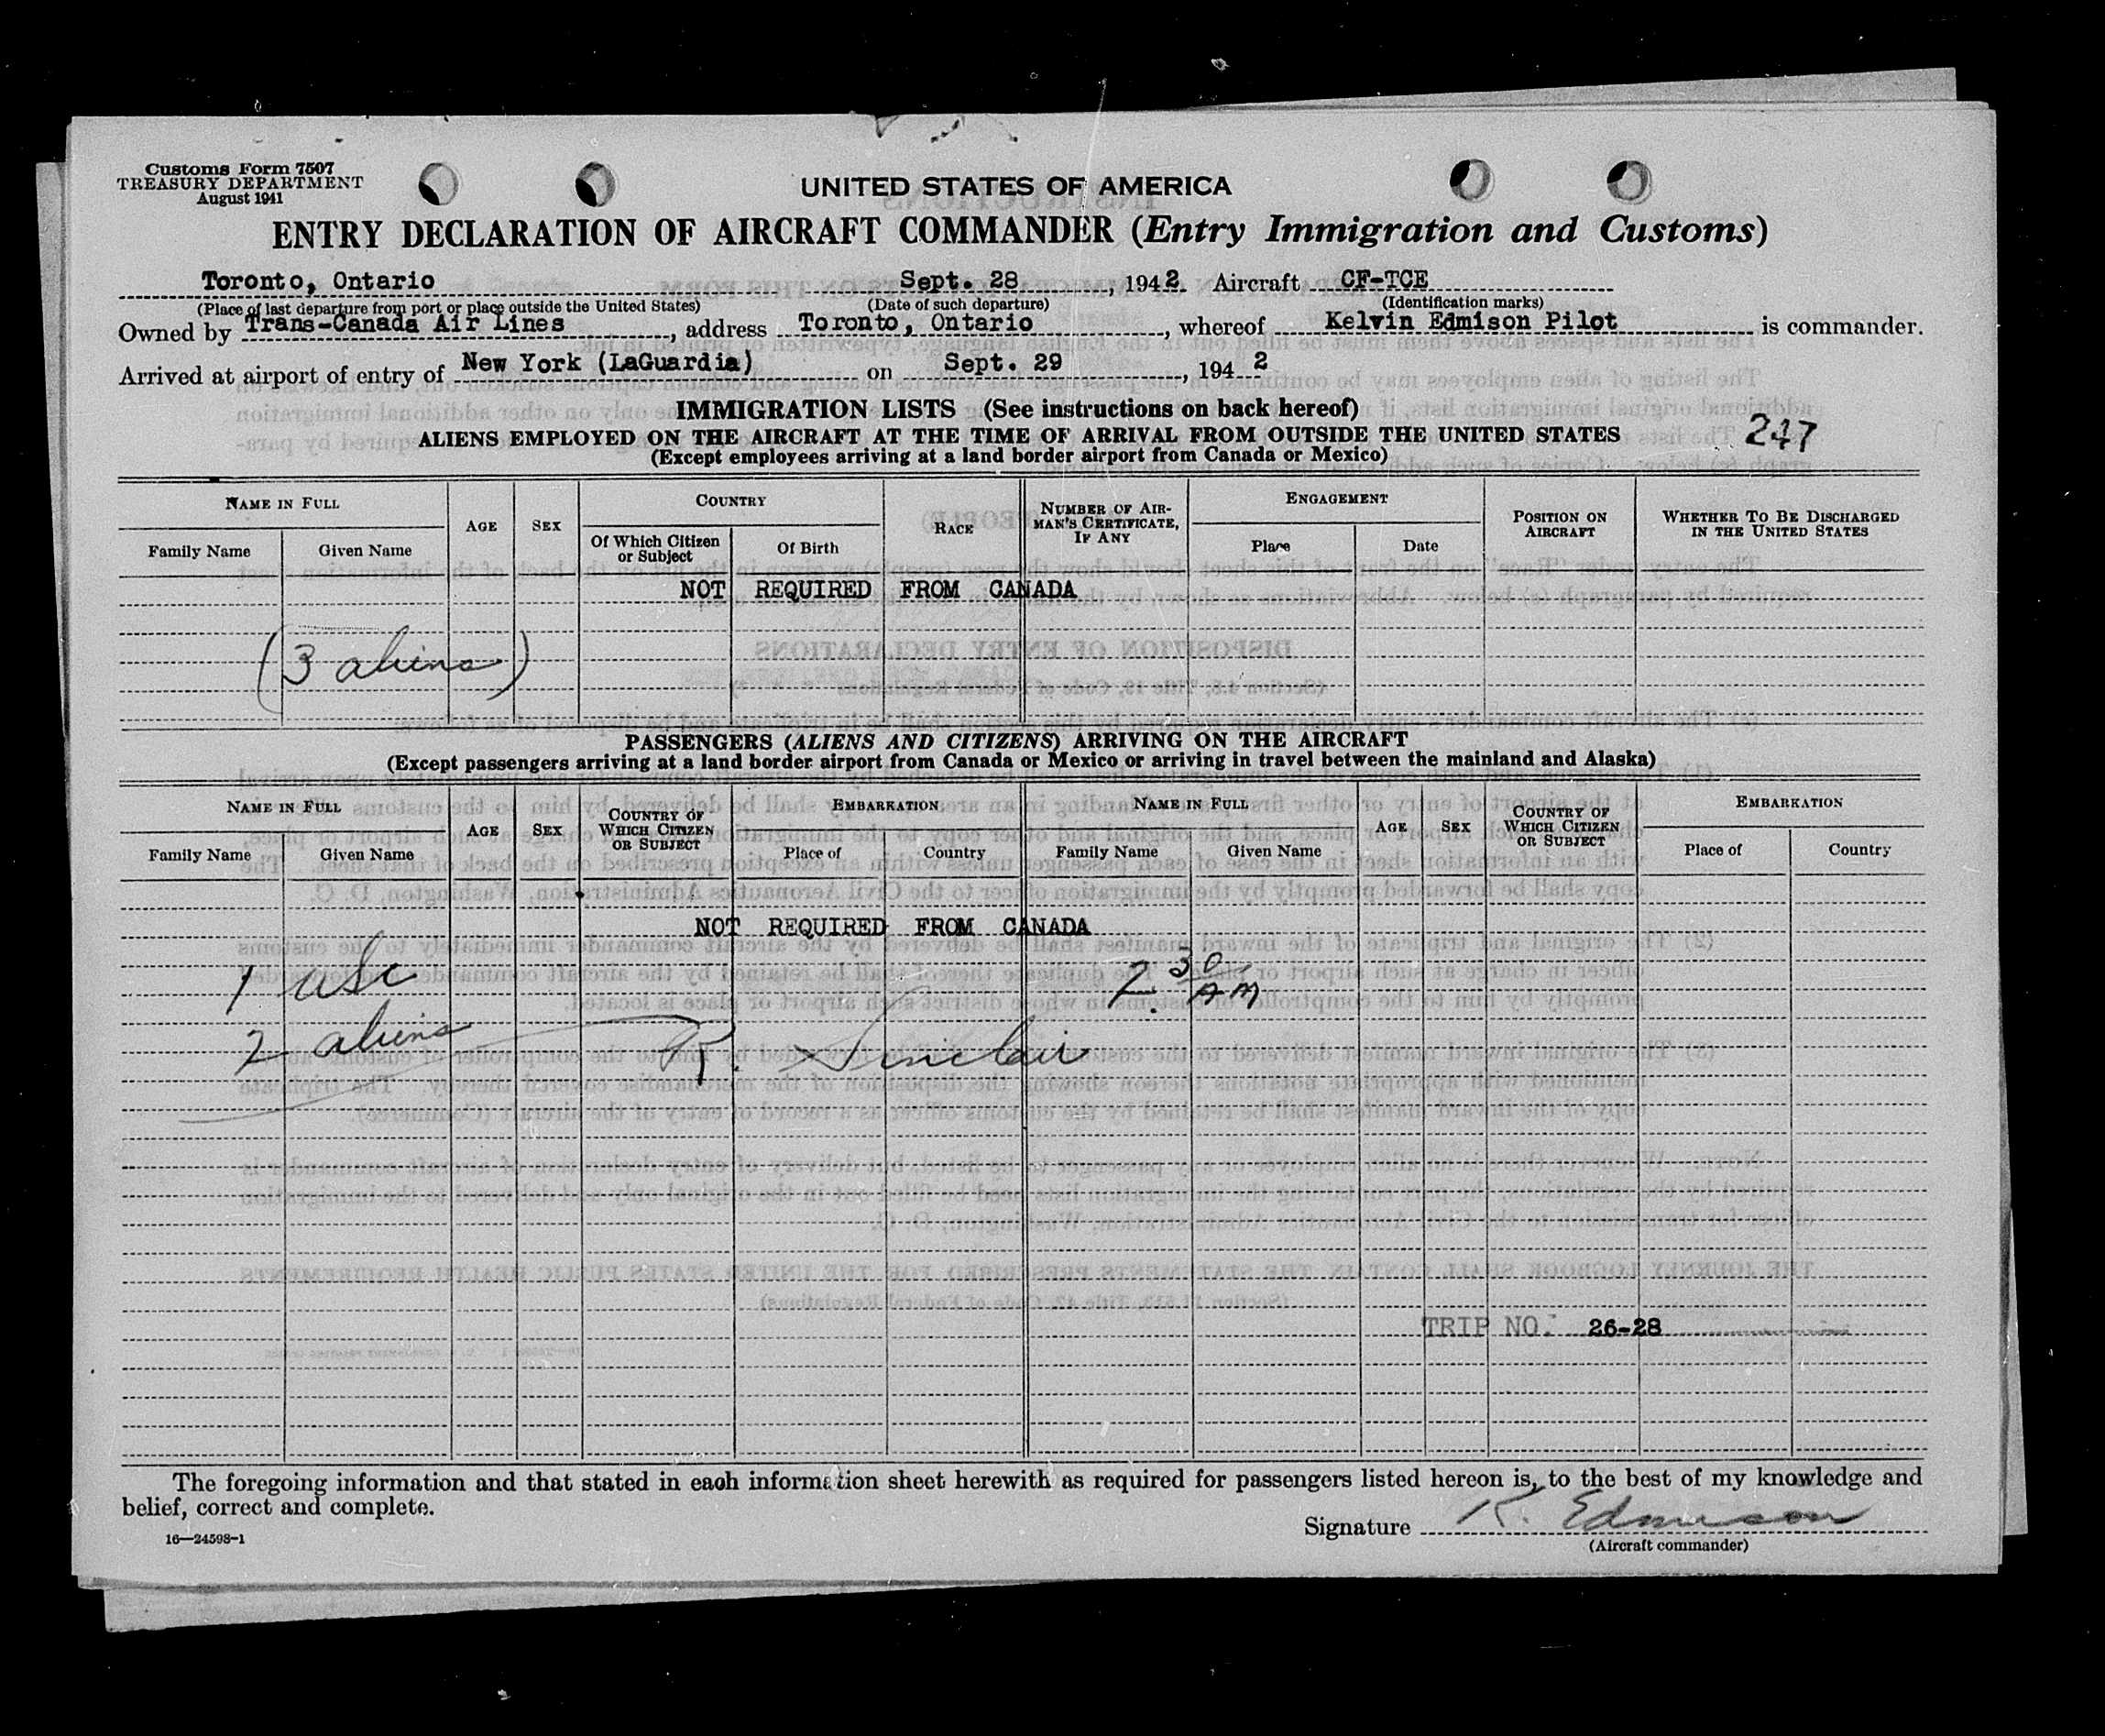 Customs Form 7507
TREASURY DEPARTMENT
August 1941
UNITED STATES OF AMERICA
ENTRY DECLARATION OF AIRCRAFT COMMANDER (Entry Immigration and Customs)
Toronto, Ontario Sept. 28, 1942 Aircraft CF-TCE
(Place of last departure from port or place outside the United States) (Date of such departure) (Identification marks)
Owned by Trans-Canada Air Lines, address Toronto, Ontario, whereof Kelvin Edmison Pilot is commander.
Arrived at airport of entry of New York (LaGuardia) on Sept. 29, 1942
IMMIGRATION LISTS (See instructions on back hereof)
ALIENS EMPLOYED ON THE AIRCRAFT AT THE TIME OF ARRIVAL FROM OUTSIDE THE UNITED STATES 247
(Except employees arriving at a land border airport from Canada or Mexico)
NAME IN FULL AGE SEX COUNTRY RACE NUMBER OF AIRMAN'S CERTIFICATE, IF ANY ENGAGEMENT POSITION ON AIRCRAFT WHETHER TO BE DISCHARGED IN THE UNITED STATES
Family Name Given Name Of Which Citizen or Subject Of Birth Place Date
NOT REQUIRED FROM CANADA
(3 aliens)
PASSENGERS (ALIENS AND CITIZENS) ARRIVING ON THE AIRCRAFT
(Except passengers arriving at a land border airport from Canada or Mexico or arriving in travel between the mainland and Alaska)
NAME IN FULL AGE SEX COUNTRY OF WHICH CITIZEN OR SUBJECT EMBARKATION NAME IN FULL AGE SEX COUNTRY OF WHICH CITIZEN OR SUBJECT EMBARKATION
Family Name Given Name Place of Country Family Name Given Name Place of Country
NOT REQUIRED FROM CANADA
1 USC 2 30 AM
2 aliens R. Sinclair
TRIP NO. 26-28
The foregoing information and that stated in each information sheet herewith as required for passengers listed hereon is, to the best of my knowledge and
belief, correct and complete.
Signature K. Edmison
16—24598-1 (Aircraft commander)